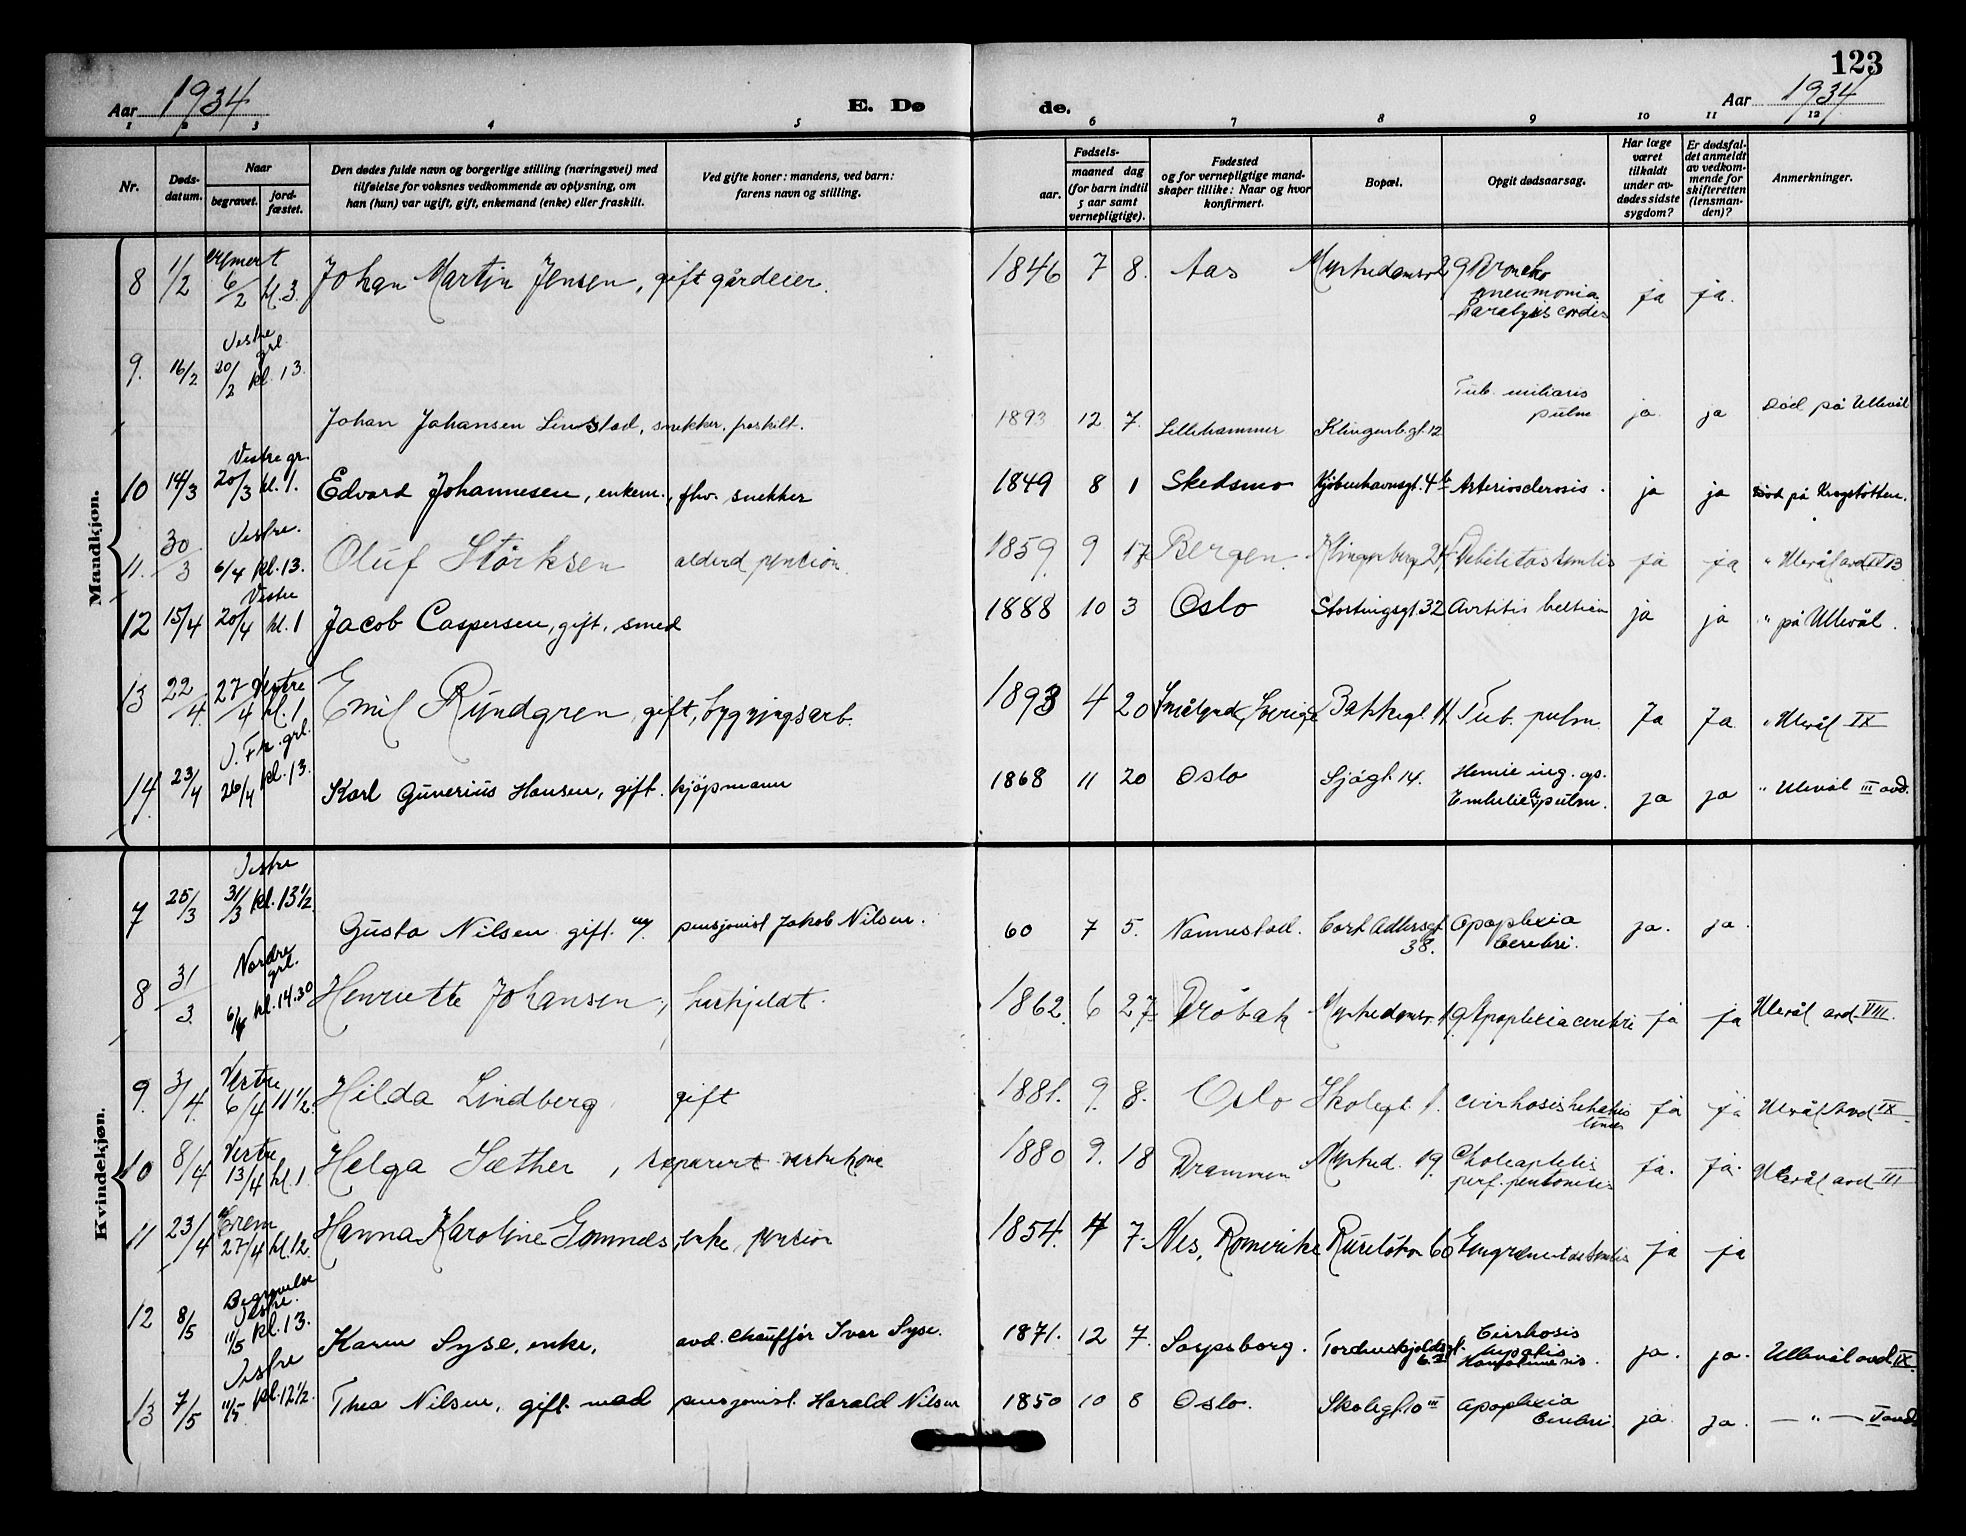 123
Aar 1934 E. Døde. Aar 1934
1 2 3 4 5 6 7 8 9 10 11 12
Nr.
Døds-
datum.
Naar
begravet.
jord-
fæstet.
Den dødes fulde navn og borgerlige stilling (næringsvei) med
tilføielse for voksnes vedkommende av oplysning, om
han (hun) var ugift, gift, enkemand (enke) eller fraskilt.
Ved gifte koner: mandens, ved barn:
farens navn og stilling.
Fødsels-
aar.
maaned dag
(for barn indtil
5 aar samt
vernepligtige).
Fødested
og for vernepligtige mand-
skaper tillike: Naar og hvor
konfirmert.
Bopæl.
Opgit dødsaarsag.
Har læge
været
tilkaldt
under av-
dødes sidste
sygdom?
Er dødsfal-
det anmeldt
av vedkom-
mende for
skifteretten
(lensman-
den)?
Anmerkninger.
Mandkjøn.
8 1/2 6/2 kl. 3. Johan Martin Jensen, gift gårdeier. 1846 7 8. Aas Broncho
pneumonia
paralysis cordis ja ja.
Vestre
grl.
9. 16/2 20/2 kl. 13.
Johan Johansen Linstad, snekker, fraskilt. 1893 12 7. Lillehammer Klingenb.gt. 12 Tub. miliaris
pulm ja. ja Død på Ullevål
Vestre gr.
10 14/3 20/3 kl. 1. Edvard Johannesen, enkem., fhv. snekker 1849 8 1 Skedsmo Kjøbenhavnsgt. 4 Arteriosclerosis. ja ja Død på Krogstøtten.
Vestre.
11. 30/3 6/4 kl. 13. Oluf Størksen alderd pension. 1859. 9 17 Bergen. Klingenberg 24 Debilitas senilis ja ja " Ulevål avd
Vestre
12 15/4 20/4 kl. 1 Jacob Caspersen, gift, smed 1888 10 3 Oslo Stortingsgt. 32 ja ja " på Ullevål.
13 22/4 27/4 Vestre kl. 1 Emil Rundgren, gift, bygningsarb. 1893 4 20 Sverige Bakkegt. 11 Tub. pulm. Ja Ja " Ulevål IX
V. Fr. grl.
14 23/4 26/4 kl. 13. Karl Gunerius Hansen, gift. kjøpmann 1868 11 20 Oslo Sjøgt. 14. Hernie ing. op.
Embolie a. pulm. ja ja " Ulevål III avd.
Kvindekjøn.
Vestre
7 25/3 31/3 kl. 13 1/2. Gusta Nilsen gift m/ pensjonist Jakob Nilsen. 60 7 5. Nannestad. Cort Adlersgt
38. Apoplexia
Cerebri. ja. ja.
Nordre
grl.
8 31/3 6/4 kl. 14.30 Henriette Johansen, 1862. 6 27 Drøbak Apoplexia cerebri ja ja Ulevål avd VIII.
9. 3/4. Vestre 6/4 11 1/2. Hilda Lindberg gift 1881. 9. 8. Oslo Skolegt. 1. cirrhosis hepatis ja ja Ulevål Avd IX
10 8/4 Vestre 13/4 kl. 1 Helga Sæther, separert 1880 9. 18 Drammen 19. ja. ja. Ulevål avd III
11 23/4 Crem 27/4 kl. 12. Hanna Karoline enke, pension 1854. 4 7. Nes, Romerike 60 ja ja
Begravelse
Vestre.
12 8/5 11/5 kl. 13. Karen Syse, enke, avd. chauffør Ivar Syse. 1871. 12 7. Sarpsborg. Tordenskjoldsgt. Cirrhosis
hepatis ja. ja. Ullevål avd IX
Vestre
13 7/5 11/5 kl. 12 1/2. Thea Nilsen, gift med pensjonist Harald Nilsen 1850 10 8 Oslo. Skolegt. 10 III Apoplexia
Cerebri. ja. ja. — " — V avd